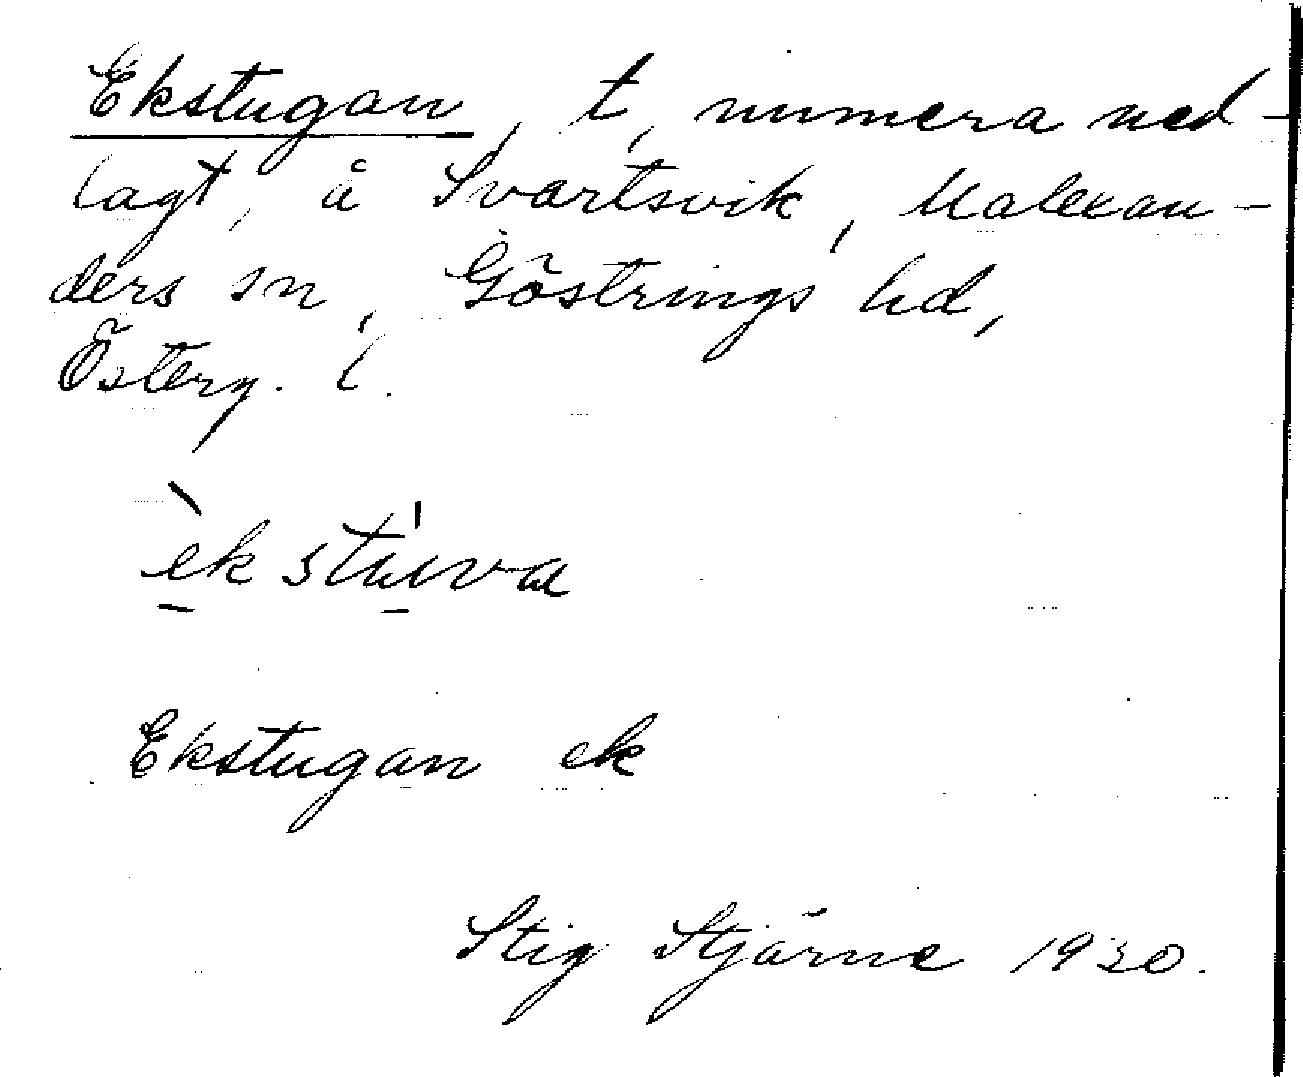 Ekstugan, t, numera ned-
lagt, å Svartsvik, Malexan-
ders sn, Göstrings hd,
Österg. l.
èk stu̍va
Ekstugan ek
Stig Stjärne 1930.